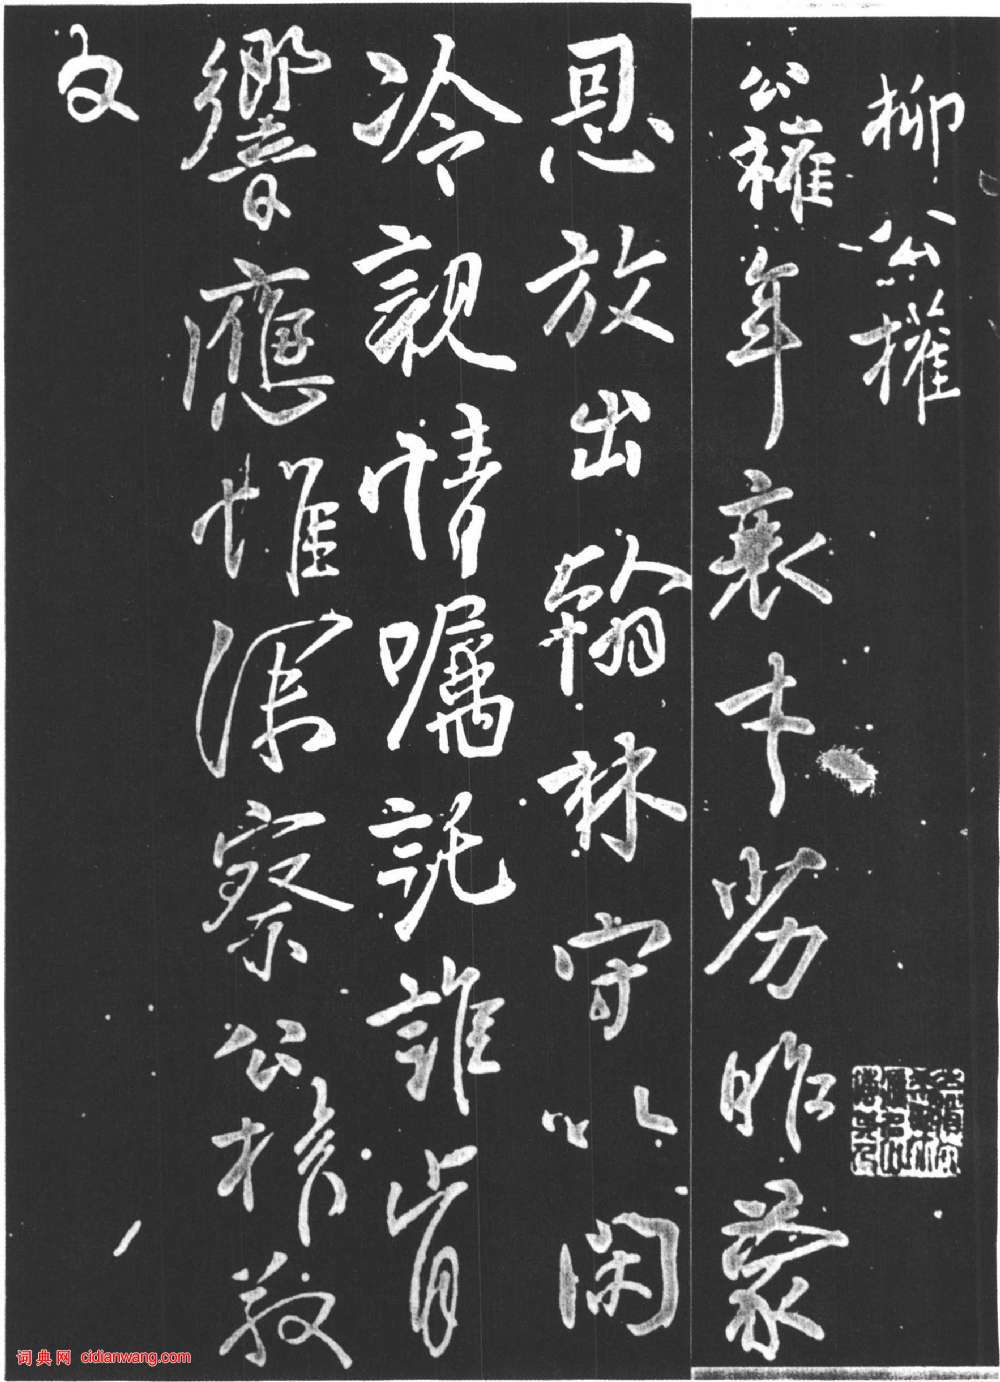 柳公權
公權年衰才劣昨蒙
恩放出翰林守以閑
冷親情囑託誰肯
響應惟深察公權敬
白
词典网 cidianwang.com